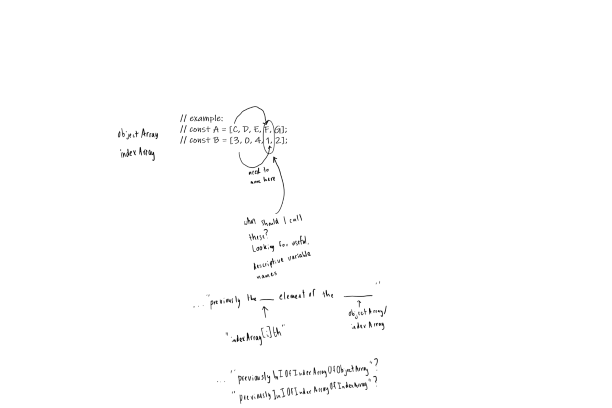 // example:
// const A = [C, D, E, F, G];
// const B = [3, 0, 4, 1, 2];
objectArray
indexArray
need to
move here
what should I call
these?
Looking for useful,
descriptive variable
names
... "previously the ___ element of the ____"
"indexArray[i]th"
objectArray/
indexArray
... "previously InIOfIndexArrayOfObjectArray"?
"previously InIOfIndexArrayOfIndexArray"?